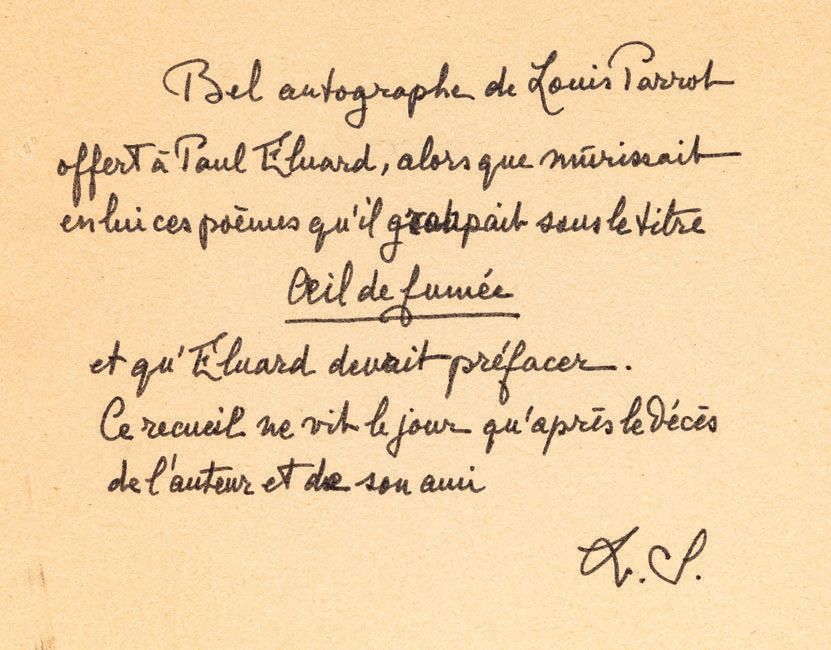 Bel autographe de Louis Parrot
offert à Paul Eluard, alors que mûrissait
en lui ces poèmes qu'il groupait sous le titre
Œil de fumée
et qu'Eluard devait préfacer.
Ce recueil ne vit le jour qu'après le décès
de l'auteur et de son ami
L. S.